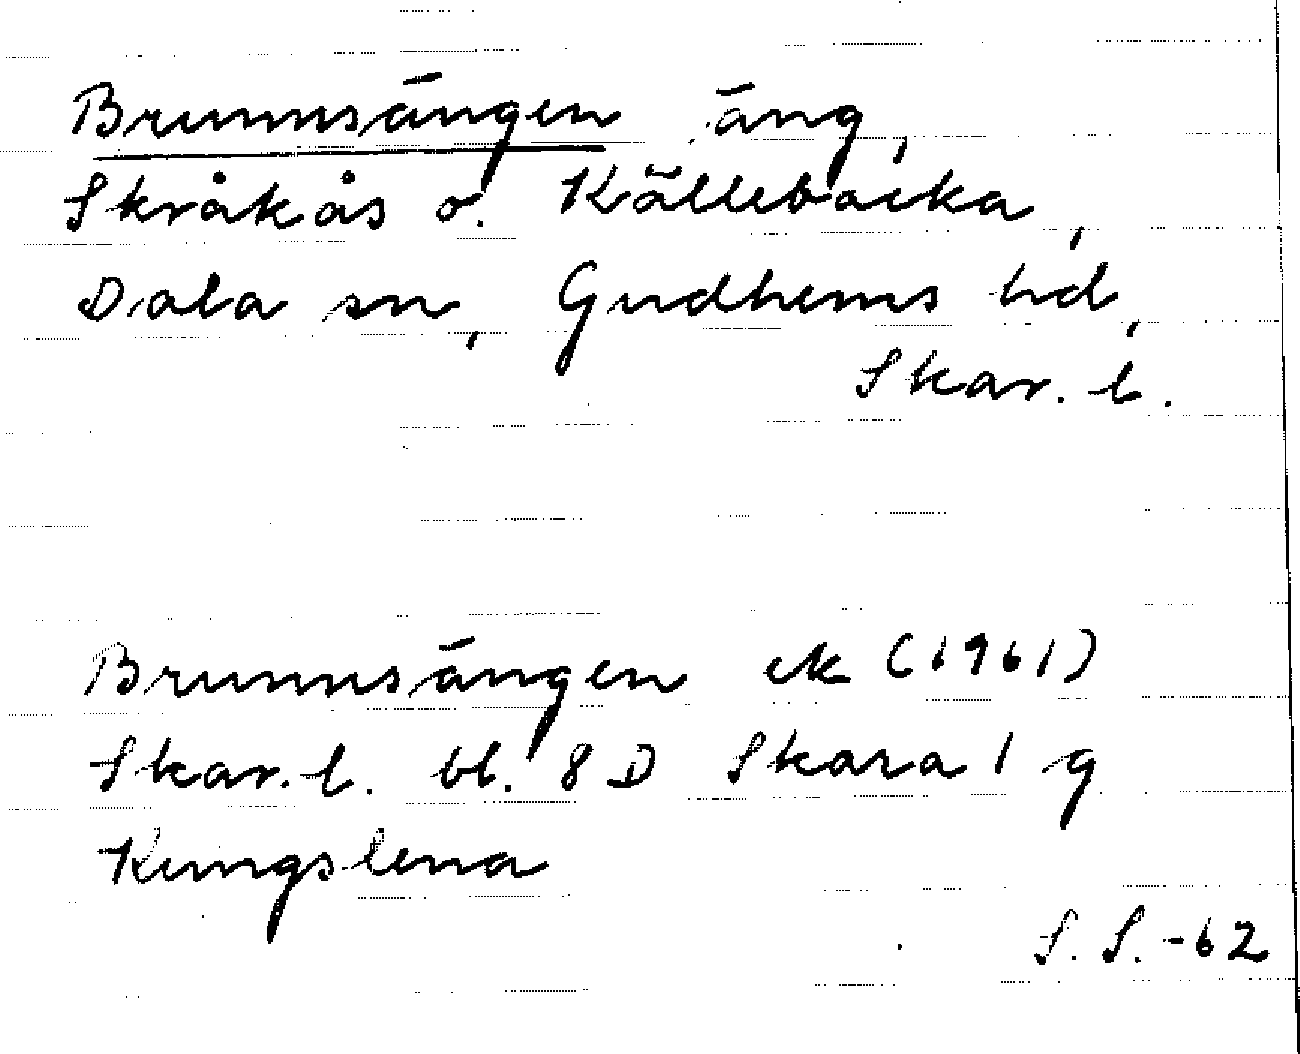 Brunnsängen äng,
Skråkås o. Källebacka,
Dala sn, Gudhems hd,
Skar. l.
Brunnsängen ek (1961)
Skar. l. bl. 8 D Skara 1 g
Kungslena
S. S. -62